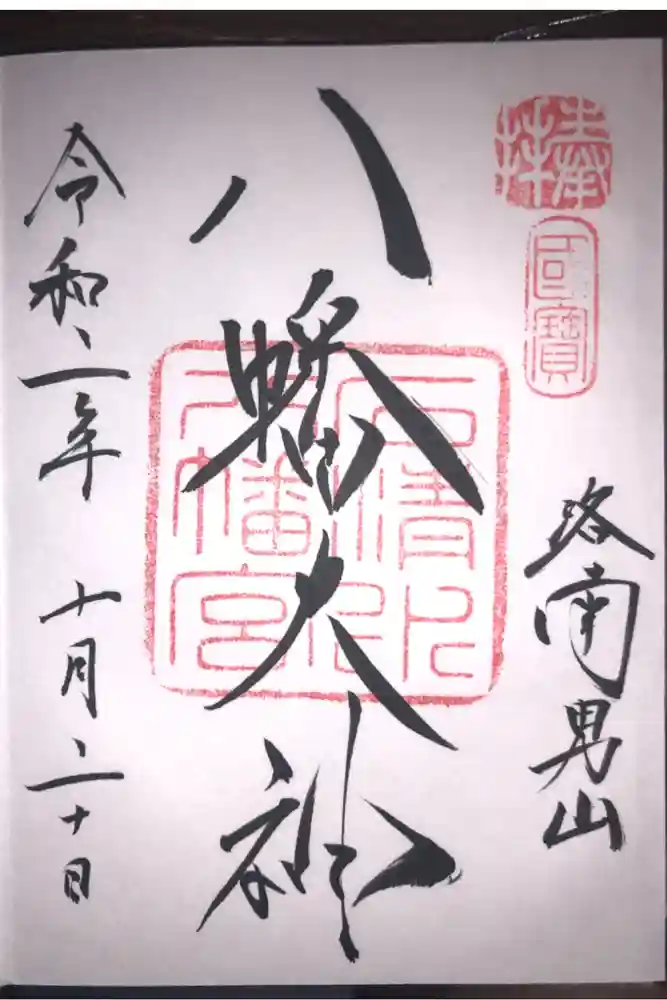 奉拝
國寶
洛南男山
八幡大神
石清水八幡宮印
令和二年 十月二十日